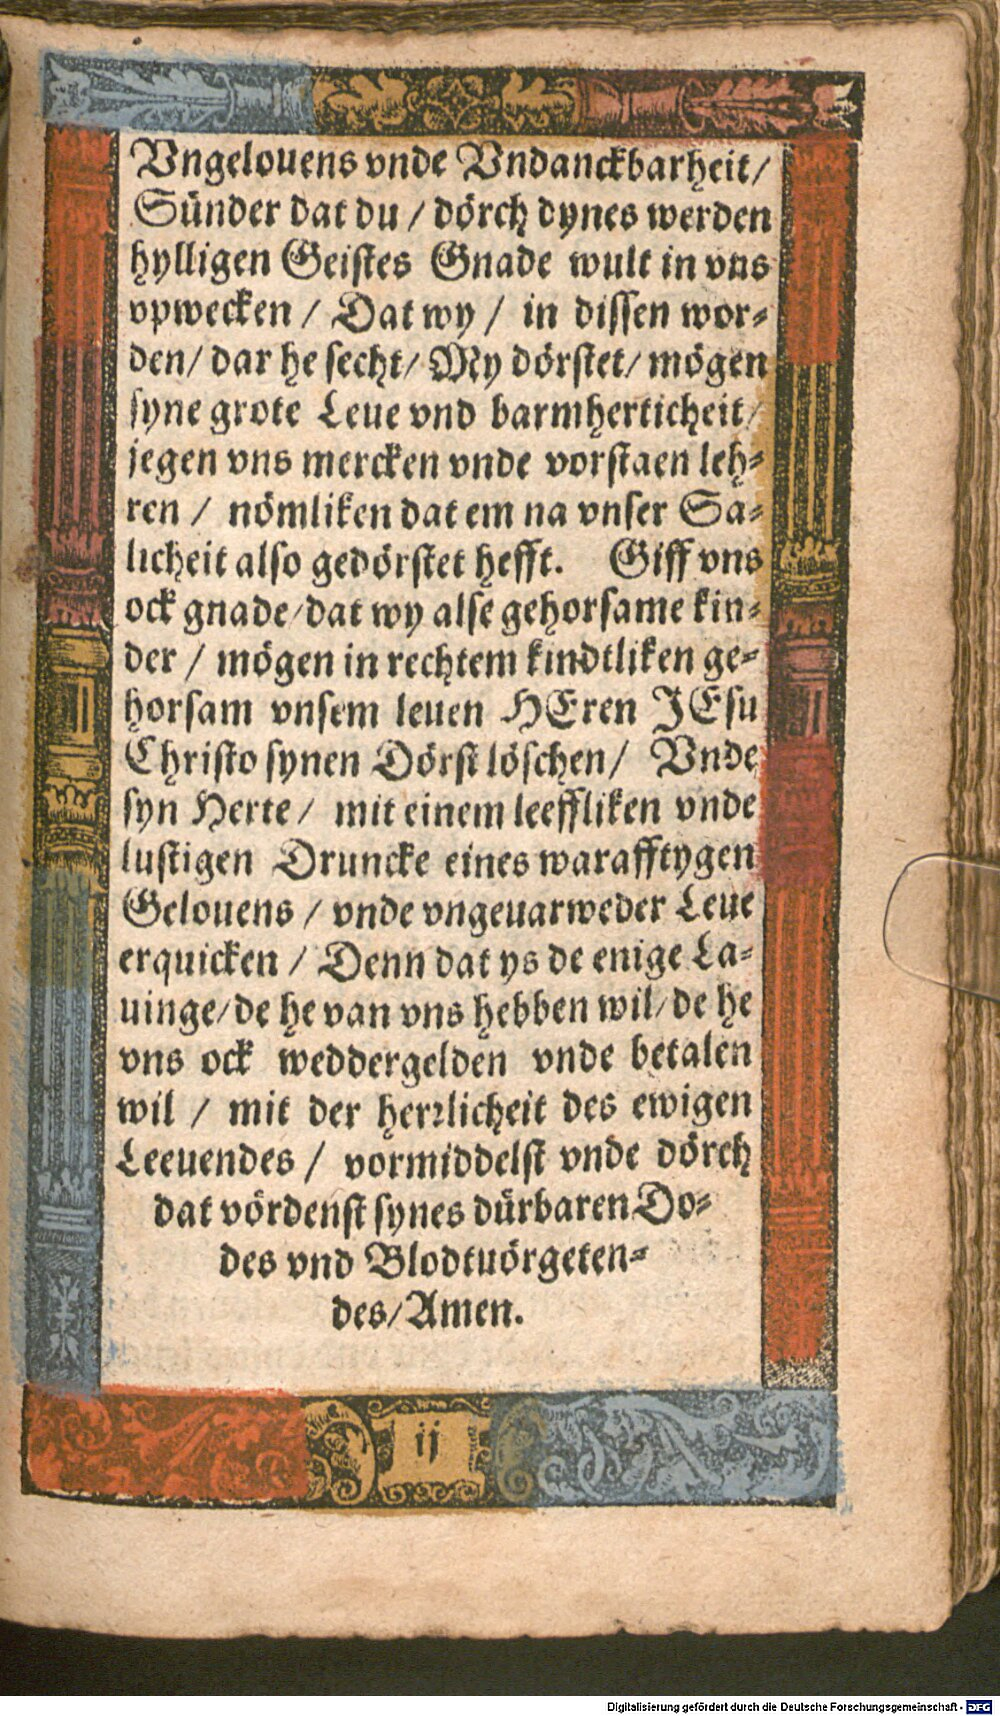 Vngelouens vnde Vndanckbarheit/
Sünder dat du / dörch dynes werden
hylligen Geistes Gnade wult in vns
vpwecken / Dat wy / in dissen wor-
den/ dar he secht/ My dörstet/ mögen
syne grote Leue vnd barmherticheit/
jegen vns mercken vnde vorstaen leh-
ren / nömliken dat em na vnser Sa-
licheit also gedörstet hefft. Giff vns
ock gnade/dat wy alse gehorsame kin-
der / mögen in rechtem kindtliken ge-
horsam vnsem leuen HEren JEsu
Christo synen Dörst löschen/ Vnde
syn Herte / mit einem leeffliken vnde
lustigen Druncke eines warafftygen
Gelouens / vnde vngeuarweder Leue
erquicken / Denn dat ys de enige La-
uinge/de he van vns hebben wil/de he
vns ock weddergelden vnde betalen
wil / mit der herrlicheit des ewigen
Leeuendes / vormiddelst vnde dörch
dat vördenst synes dürbaren Do-
des vnd Blodtuörgeten-
des/Amen.
ij
Digitalisierung gefördert durch die Deutsche Forschungsgemeinschaft - DFG